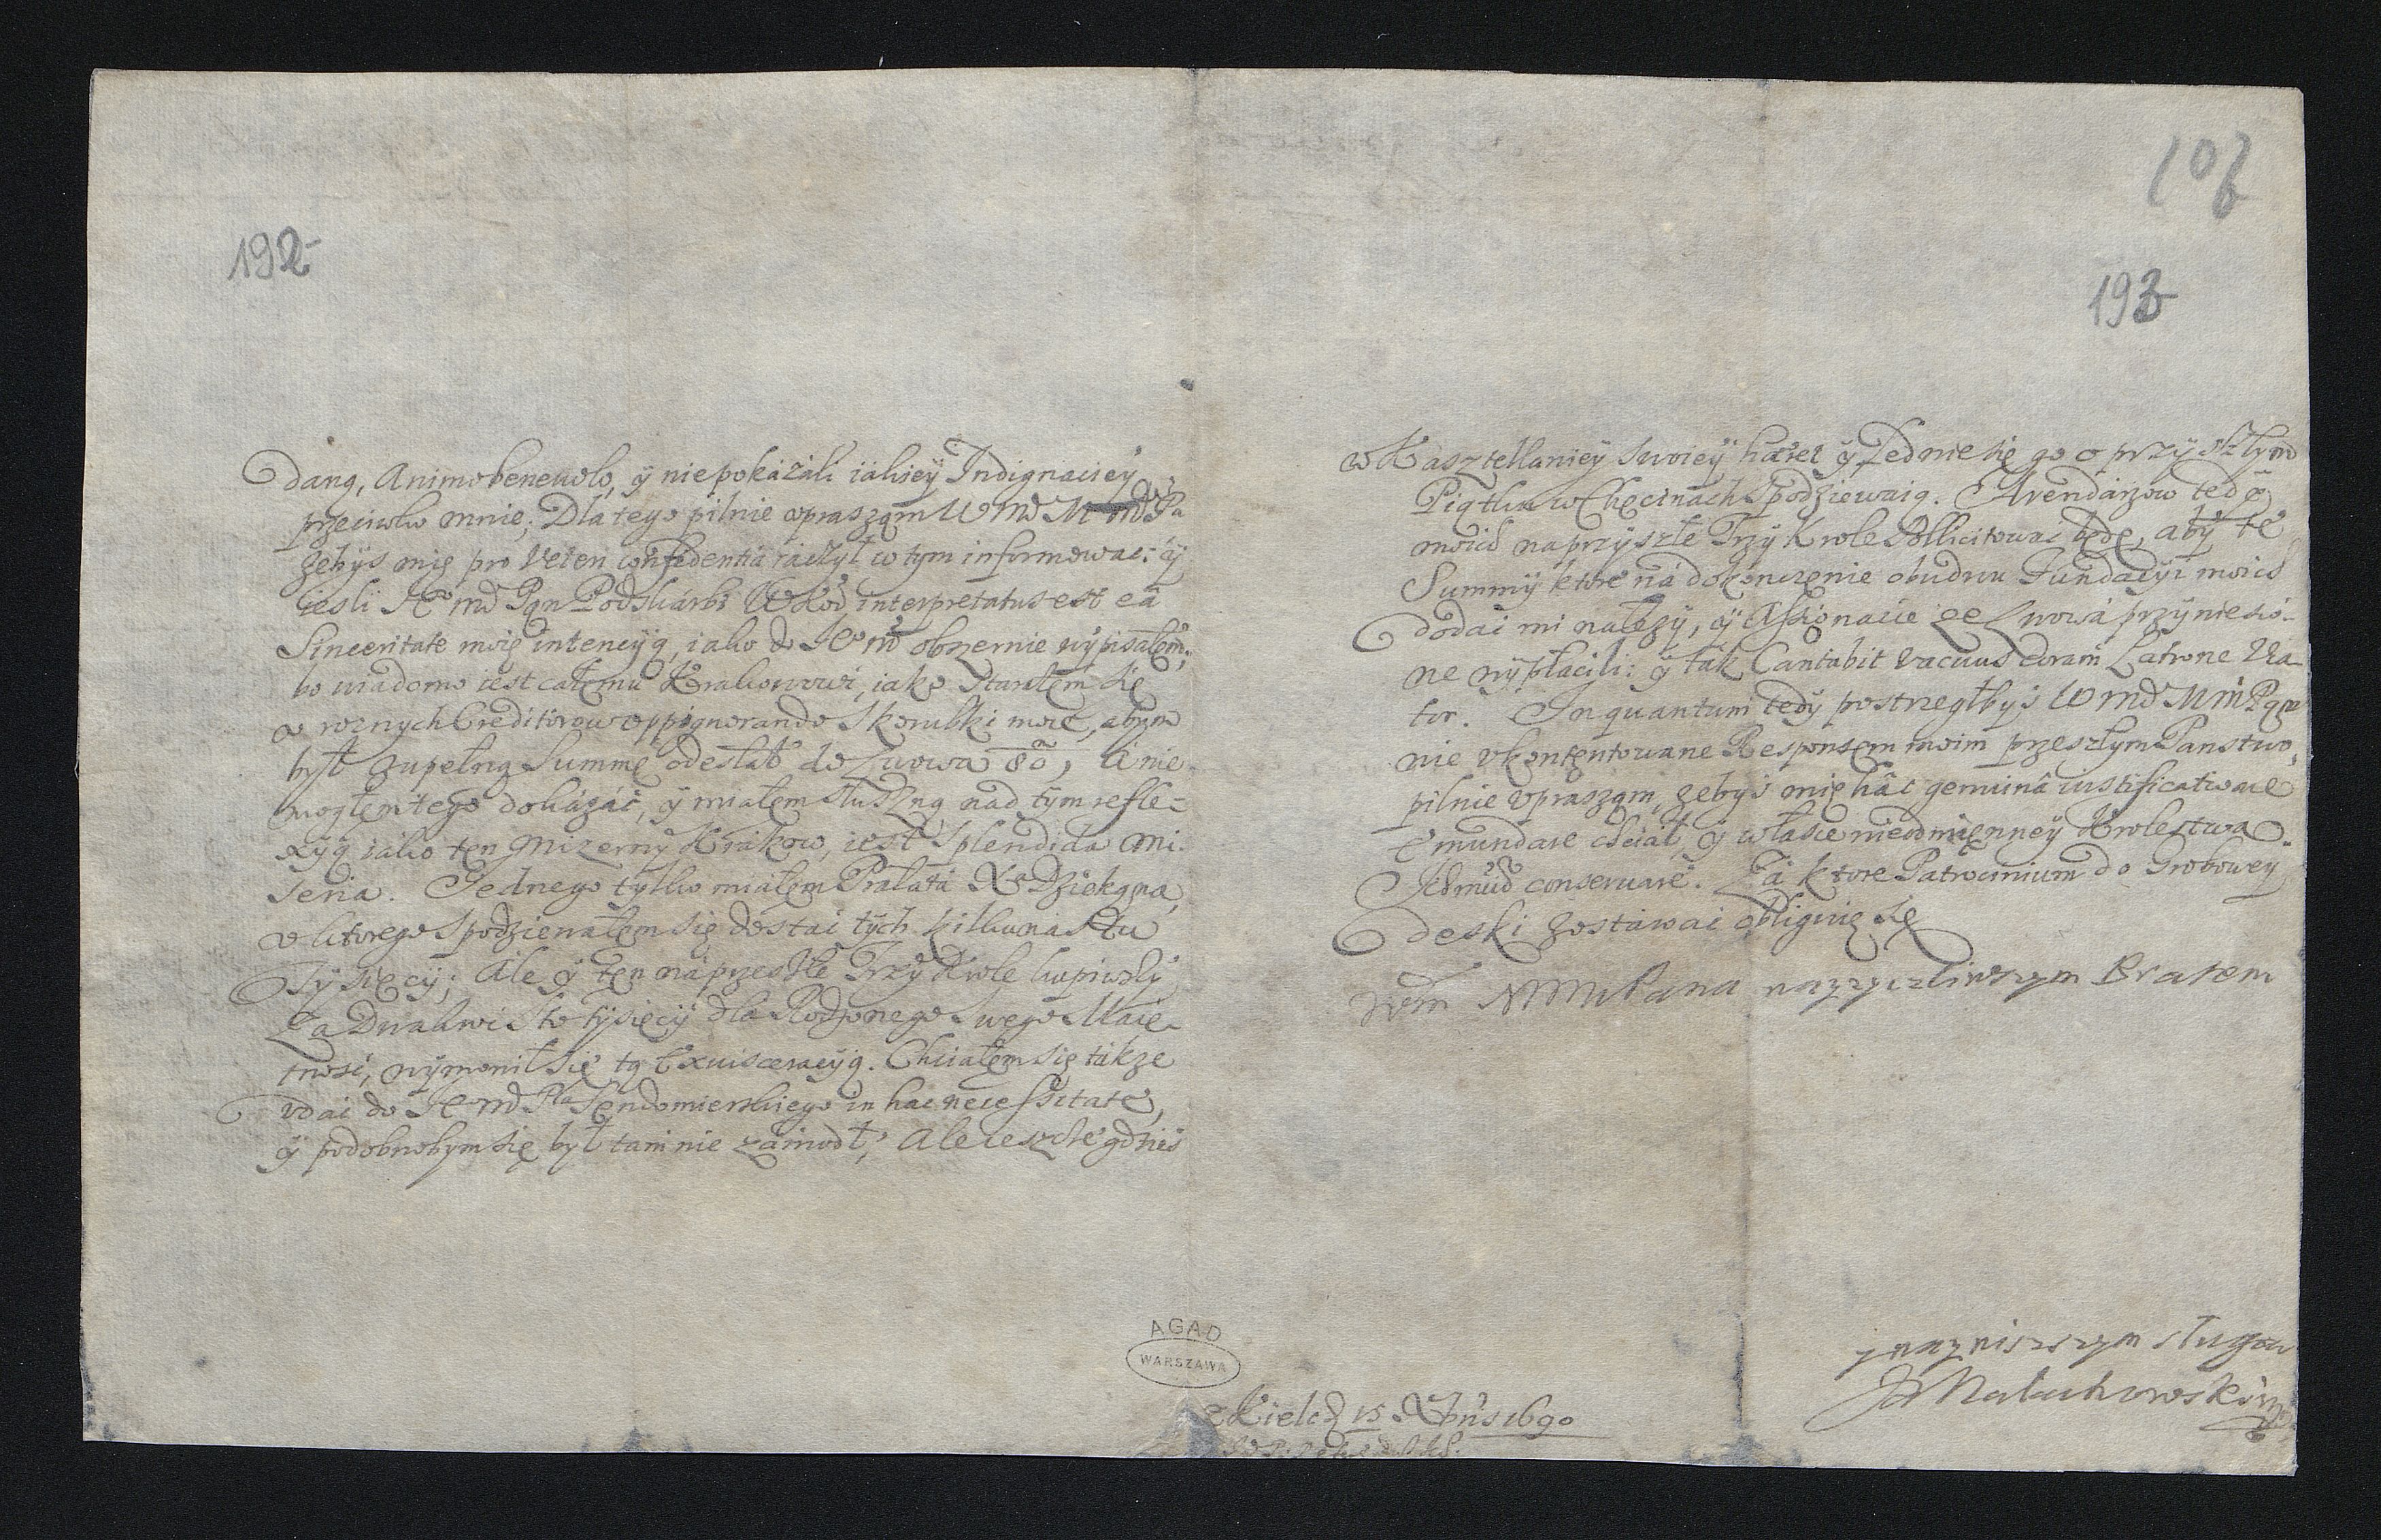 192
daną, Animo beneuolo, ÿ nie pokázáli iákieÿ Indignacieÿ
przeciwko mnie; Dla tego pilnie upraszam W md M md Pa
zebÿs mię pro veteri confidentia racżÿł w tym informowac: aÿ
iesli Je md Pan Podskárbi WKor, interpretatus est eâ
Sinceritate moię intencÿą, iako do Je md obszernie wÿpisałem;
bo wiadomo iest całemu Krakowowi, iako Starałem się
v roznych Creditorow oppignorando Skorubki moie, abÿm
bÿł zupełną Summę odesłał do Lwowa, Li nie
mogłem tego dokázáć, ÿ miałem słuszną nad tÿm refle-
xÿą iako ten Mizernÿ Krakow, iest Splendida mi-
seria. Jednego tÿlko miałem Prałatá Xa Dziekana,
v ktorego Spodziewałem się dostać tÿch kilkunastu
Tÿsięcÿ; Ale ÿ ten ná przeszłe Trzÿ Krole kupiwszÿ
Za Dwakroć sto tÿsięcÿ dla Rodzonego swego Maię-
tnosć, wÿmowił się tą Exuisceracÿą. Chciałem się tákze
vdać do Je md Pa Sendomierskiego in hac necessitate,
ÿ podobnobÿm się bÿł tam nie záwiodł, Ale ieszcże gdzies
106
193
w Kasztellanieÿ swoieÿ háset ÿ ledwie się go o przÿszłÿm
Piątku w Chęcinách Spodziewaią. Arendárzow tedÿ
moich na przÿszłe Trzÿ Krole Sollicitowáć będę, abÿ te
Summÿ ktore ná dokończenie obudwu Fundacÿi moich
dodać mi nálezÿ, ÿ Assignacie ze Lwowá przÿniesio-
ne wÿpłácili: ÿ ták Cantabit vacuus coram Latrone Via-
tor. In quantum tedÿ postrzegłbÿś W md M m Pan
nie vkontentowane Responsem moim przeszłÿm Panstwo,
pilnie vpraszam, zebÿs mię hâc genuinâ iustificatione
Emundare chciał, ÿ w łásce nieodmienneÿ Krolestwa
Ichmciow conseruare. Zá ktore Patrocinium do Groboweÿ
deski zostáwać obliguię się
Wm MMmPana nayzyczliwszym Bratem
y nayniszszym sługą
JMalachowski
z Kielc D 15 Xbris 1690
AGAD
WARSZAWA